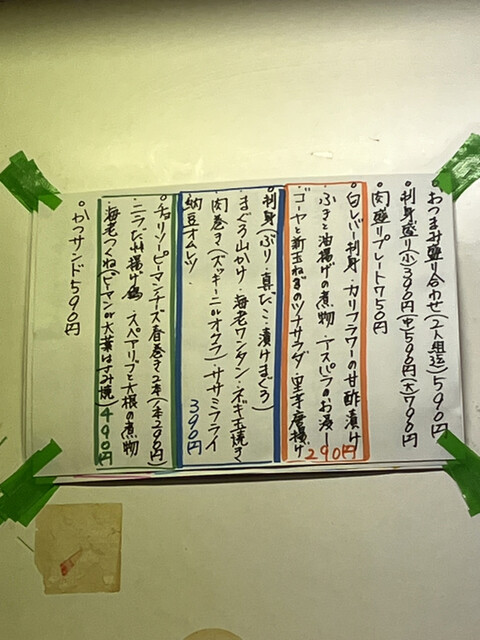 おつまみ盛り合わせ(2人組迄)590円
刺身盛り(小)390円(中)590円(大)790円
肉盛りプレート750円
白レバー刺身・カリフラワーの甘酢漬け
ふきと油揚げの煮物・アスパラのお浸し
ゴーヤと新玉ねぎのツナサラダ・里芋唐揚げ
290円
刺身(ぶり・真だこ・漬けまぐろ)
まぐろ山かけ・海老ワンタン・ネギ玉焼き
肉巻き(ズッキーニorオクラ)ササミフライ
納豆オムレツ 390円
チョリソーピーマンチーズ春巻き2本(1本290円)
ニラだれ揚げ鶏・スペアリブと大根の煮物
海老つくね(ピーマンor大葉はさみ焼)490円
かつサンド590円